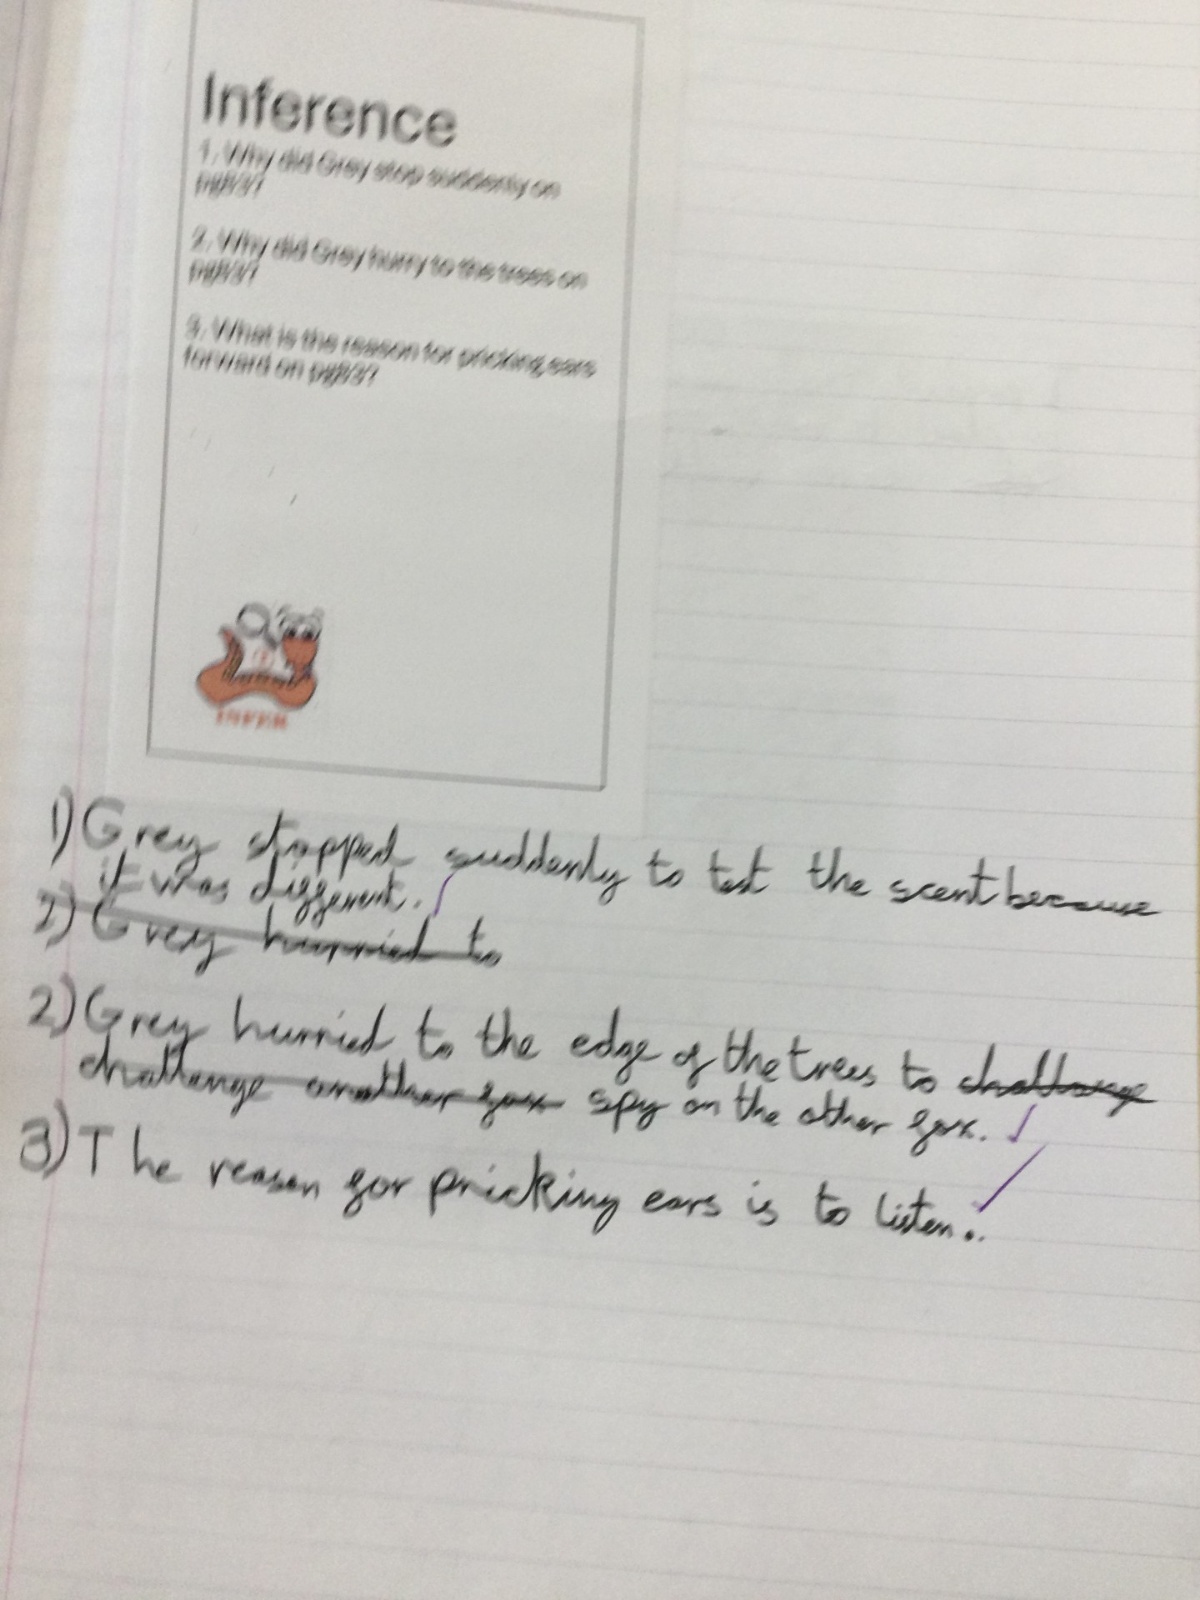 Inference
1. Why did Grey stop suddenly on
pg83?
2. Why did Grey hurry to the trees on
pg83?
3. What is the reason for pricking ears
forward on pg83?
INFER
1) Grey stopped suddenly to test the scent because
it was different.
2) Grey hurried to
2) Grey hurried to the edge of the trees to challenge
challenge another fox spy on the other fox.
3) The reason for pricking ears is to listen..